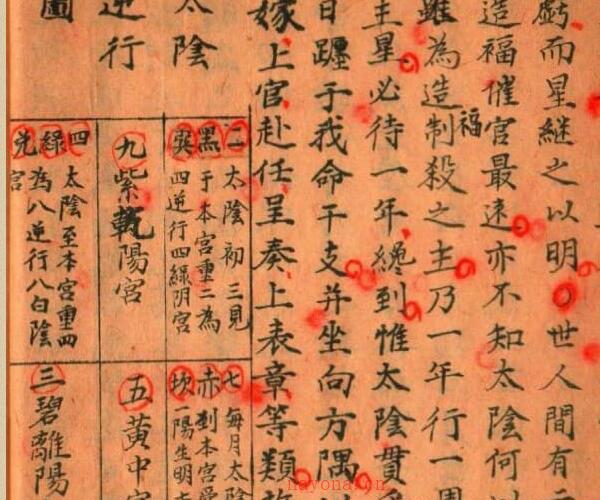 虧而星繼之以明○世人間有
造福催官最速亦不知太陰何
雖為造制殺之主乃一年行一周
福
主星必待一年纔到惟太陰貫
日躔于我命干支并坐向方隅
嫁上官赴任呈奏上表章等類
太陰
逆行
圖
二黑巽
太陰初三見
于本宮重二為
四逆行四綠阴宮
九紫乾陽宮
四綠兌
太陰至本宮重四
為八逆行八白陰
宮
七赤坎
每月太陰
到本宮
一陽生明
五黃中宮
三碧離陽
nayona.cn